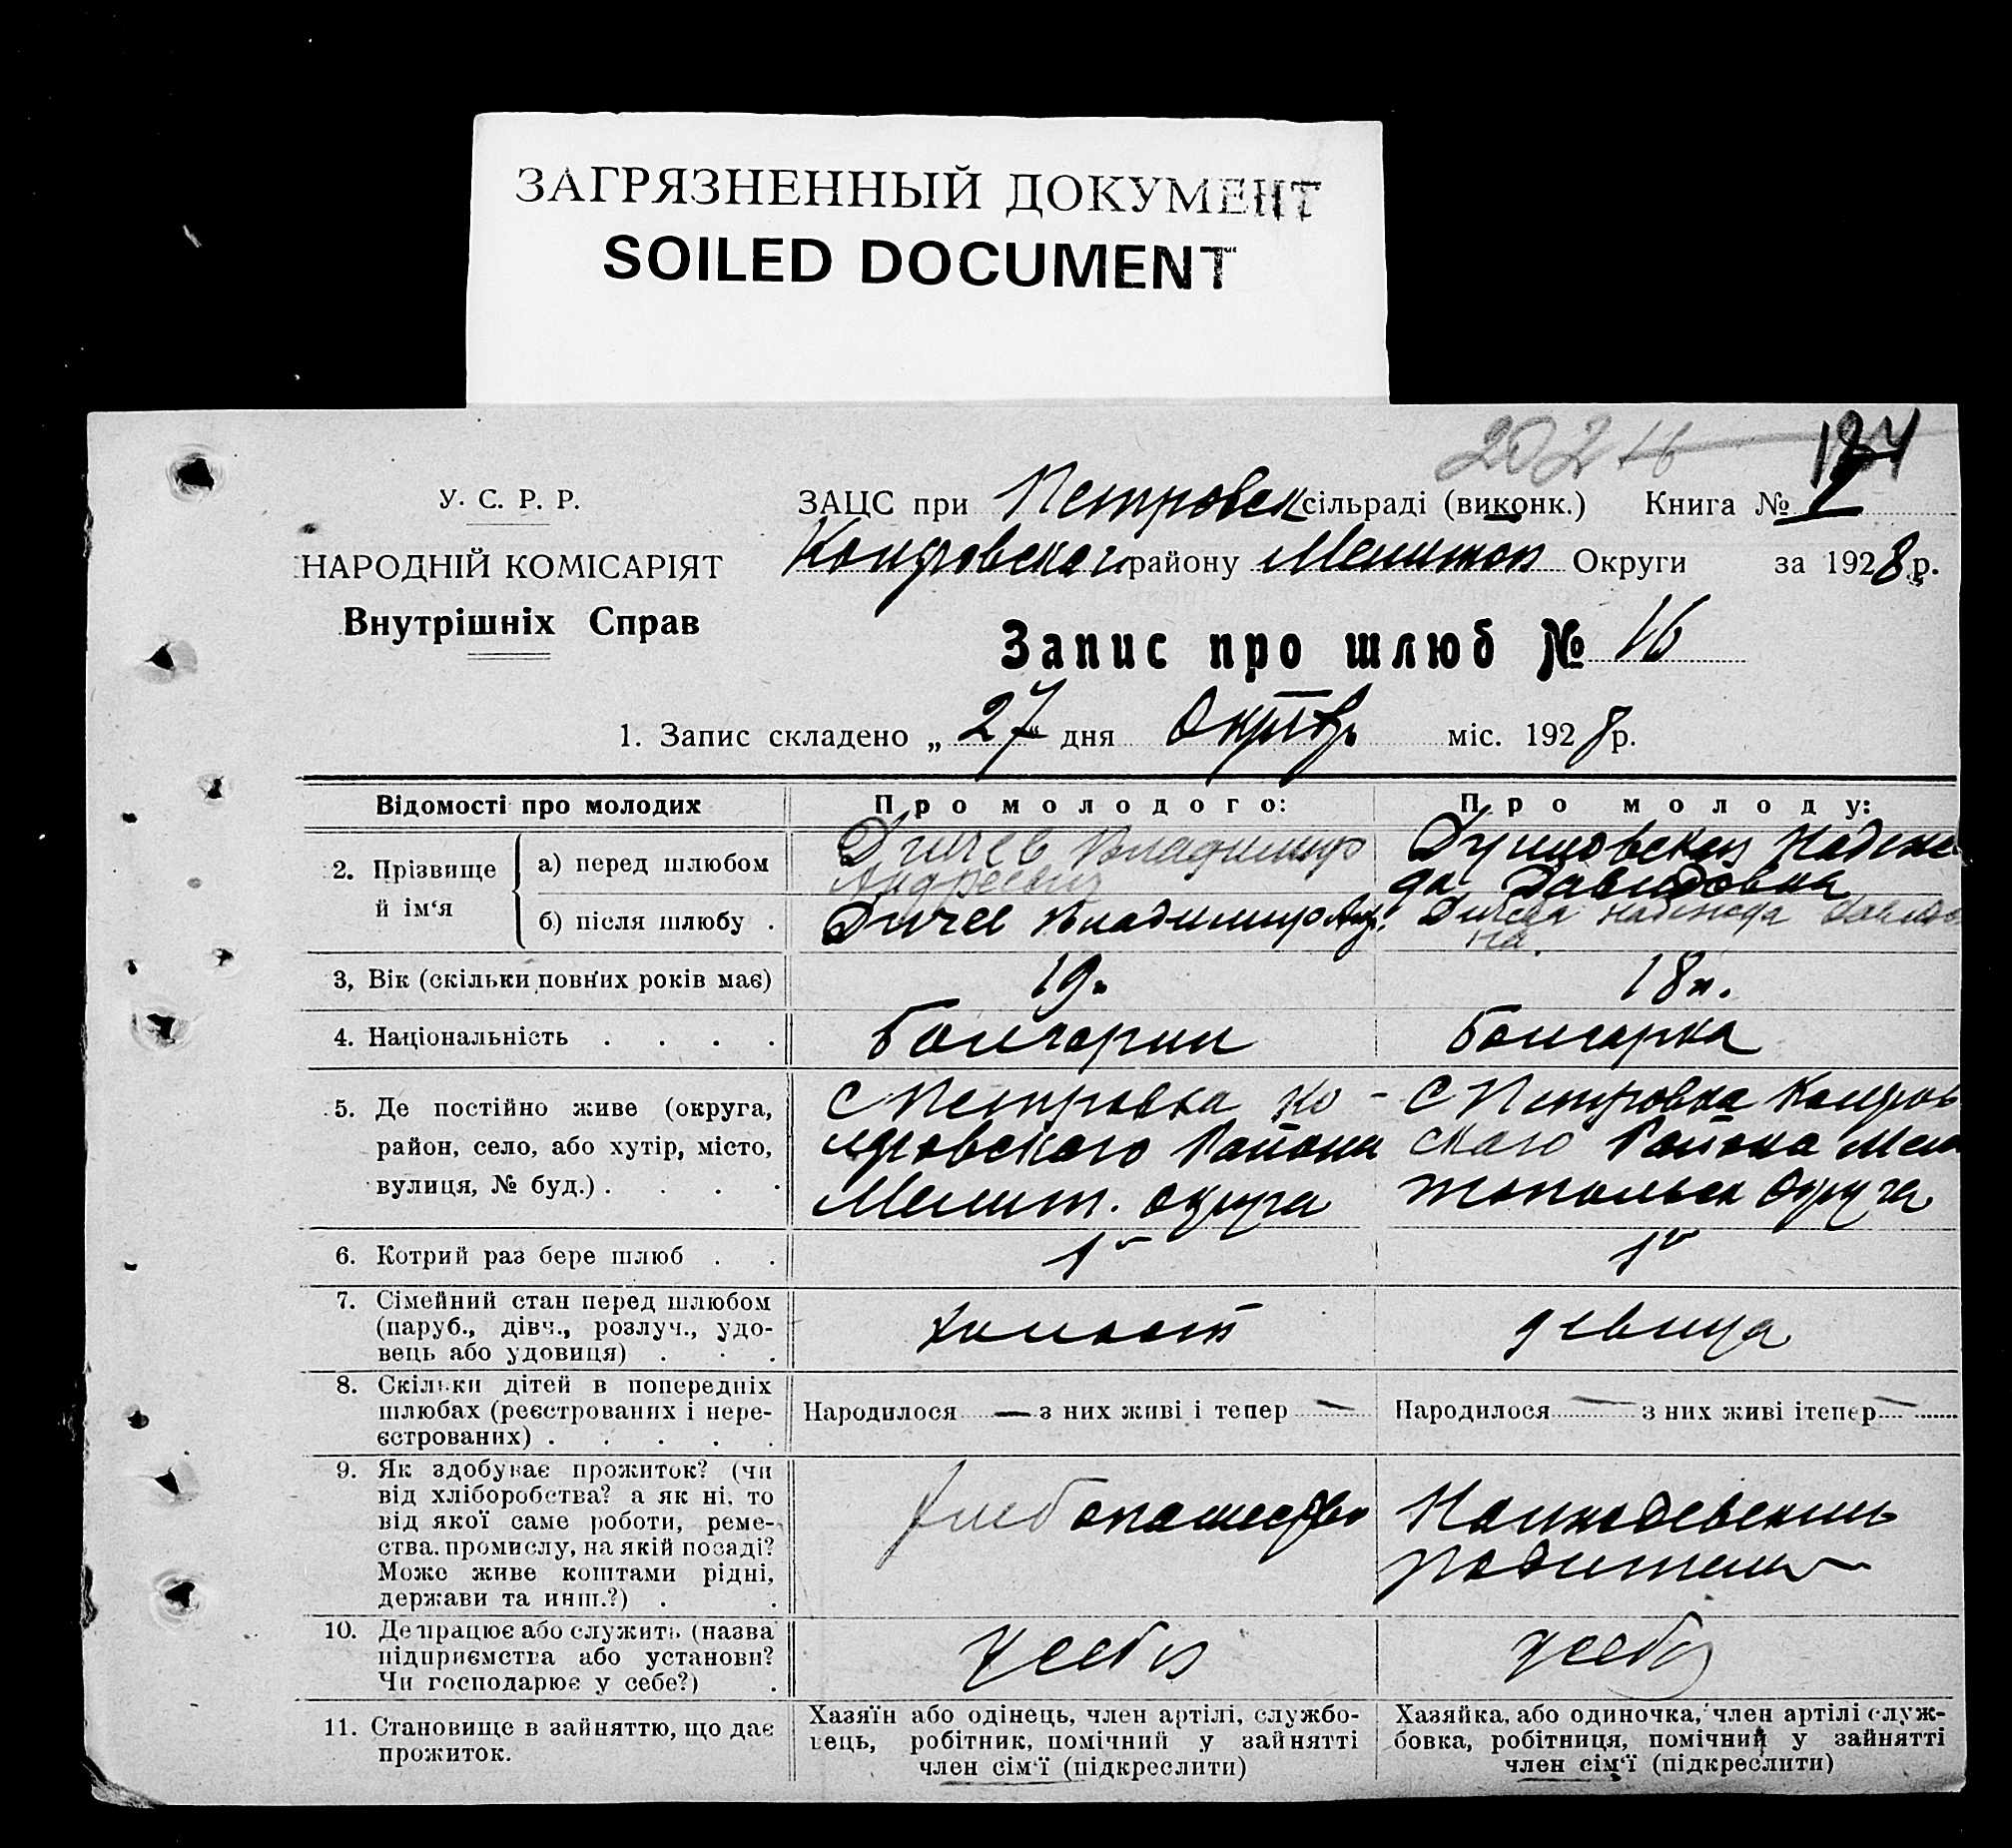 ЗАГРЯЗНЕННЫЙ ДОКУМЕНТ
SOILED DOCUMENT
202 16 124
У. С. Р. Р.
НАРОДНІЙ КОМІСАРІЯТ
Внутрішніх Справ
ЗАЦС при Петровск сільраді (виконк.) Книга № 1
району Мелитоп Округи за 1928 р.
Запис про шлюб № 16
1. Запис складено „ 27 “ дня Октябр міс. 1928 р.
Відомості про молодих
Про молодого:
Про молоду:
2. Прізвище й ім‘я
а) перед шлюбом
Дичев Владимир
Андреевич
Надеж
да Давидовна
б) після шлюбу .
Дичев Владимир Анд.
Дичева Надежда Давидов
на
3, Вік (скільки повних років має)
19.
18 л.
4. Національність . . . .
Болгарин
Болгарка
5. Де постійно живе (округа,
район, село, або хутір, місто,
вулиця, № буд.) . . . .
С Петровка Ко-
лровского Района
Мелит. округа
С Петровка Колров
ского Района Мели
топольск Округа
6. Котрий раз бере шлюб . .
1й
1й
7. Сімейний стан перед шлюбом
(паруб., дівч., розлуч., удо-
вець або удовиця) . . .
холост
девица
8. Скільки дітей в попередніх
шлюбах (реєстрованих і нере-
єстрованих) . . . . .
Народилося — з них живі і тепер —
Народилося — з них живі і тепер —
9. Як здобуває прожиток? (чи
від хліборобства? а як ні, то
від якої саме роботи, реме-
ства, промислу, на якій посаді?
Може живе коштами рідні,
держави та инш.?) . .
хлебопашество
На иждевении
родители
10. Де працює або служить (назва
підприємства або установи?
Чи господарює у себе?) .
у себя
у себя
11. Становище в зайняттю, що дає
прожиток.
Хазяїн або одінець, член артілі, службо-
вець, робітник, помічний у зайнятті
член сім‘ї (підкреслити)
Хазяйка, або одиночка, член артілі служ-
бовка, робітниця, помічний у зайнятті
член сім‘ї (підкреслити)